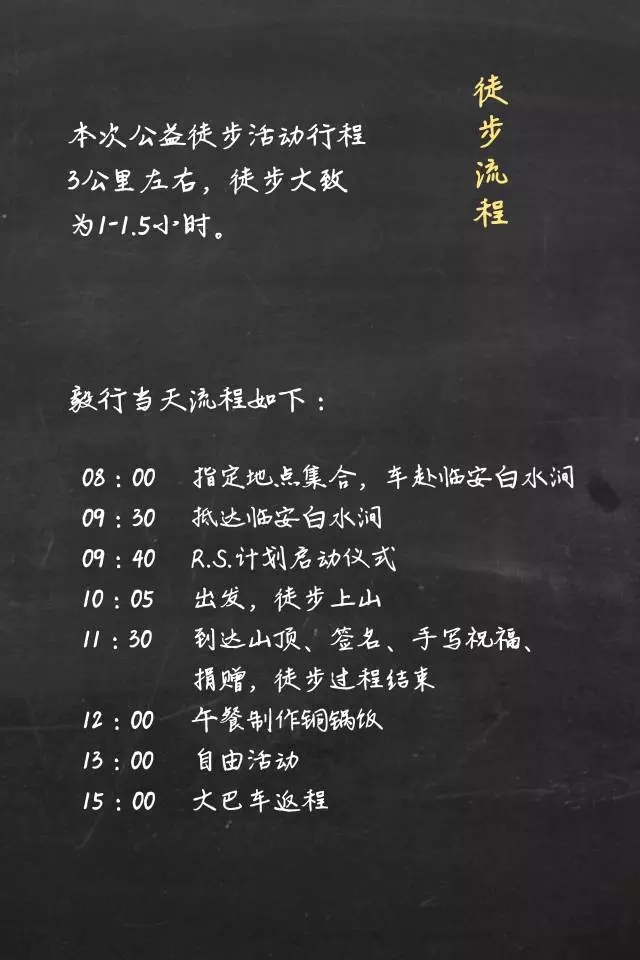 徒步流程
本次公益徒步活动行程
3公里左右，徒步大致
为1-1.5小时。
毅行当天流程如下：
08：00 指定地点集合，车赴临安白水涧
09：30 抵达临安白水涧
09：40 R.S.计划启动仪式
10：05 出发，徒步上山
11：30 到达山顶、签名、手写祝福、
捐赠，徒步过程结束
12：00 午餐制作铜锅饭
13：00 自由活动
15：00 大巴车返程